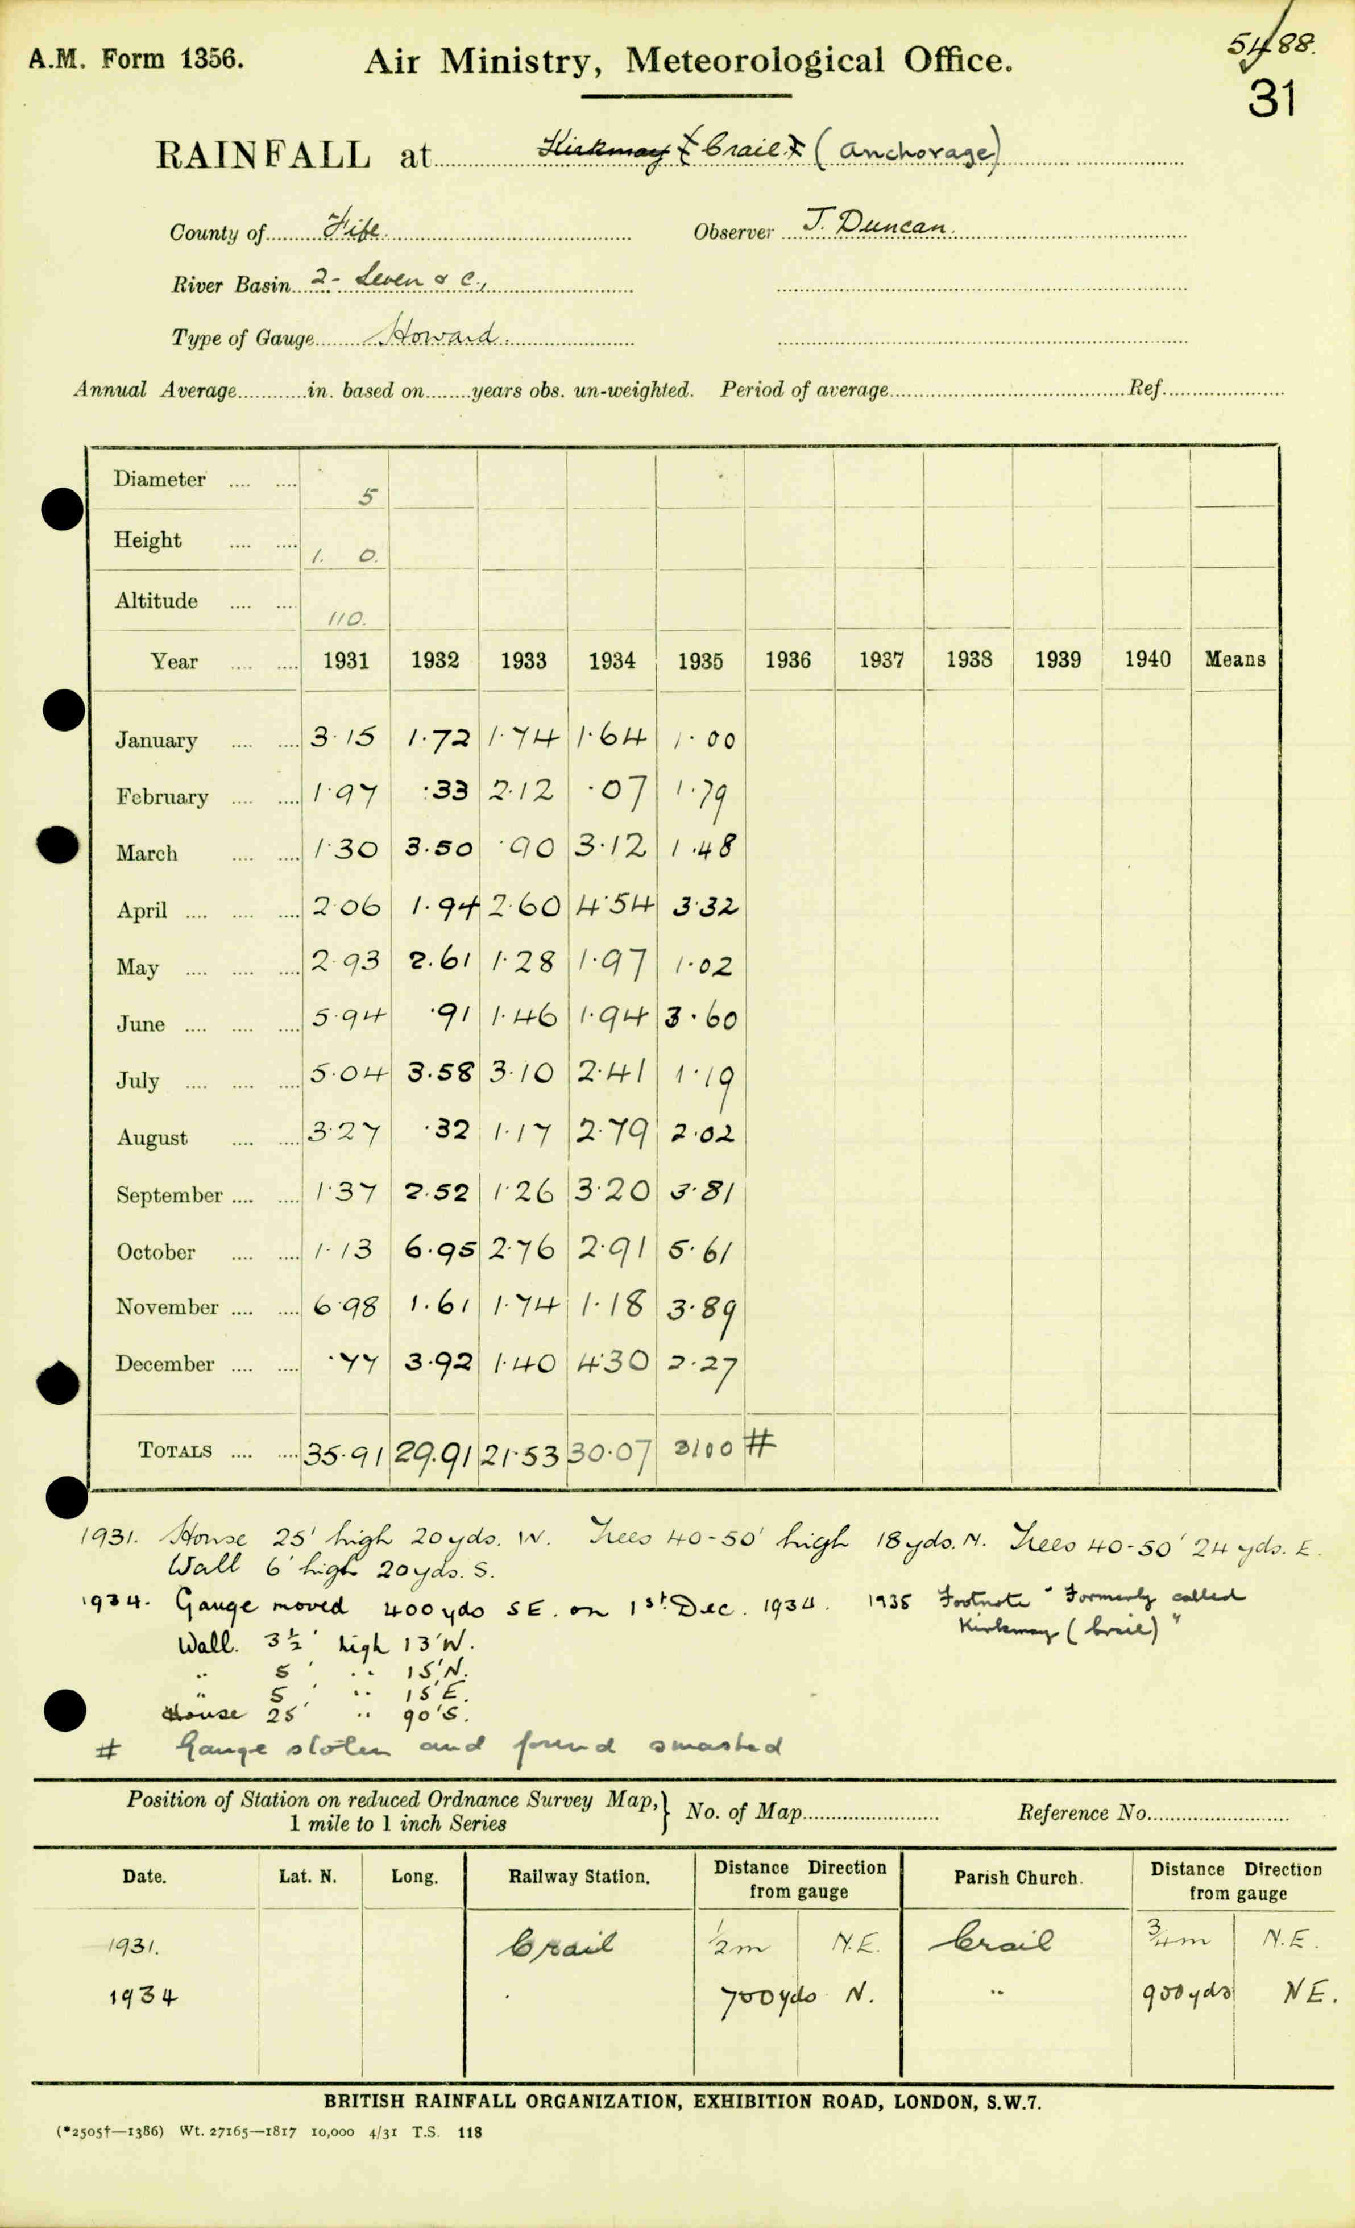 A.M. Form 1356.
Air Ministry, Meteorological Office.
5488.
31
RAINFALL at Kirkmay (Crail) (Anchorage)
County of Fife. Observer J. Duncan.
River Basin 2- Leven & c.,
Type of Gauge Howard.
Annual Average in. based on years obs. un-weighted. Period of average Ref.
Diameter 5
Height 1. 0.
Altitude 110.
Year 1931 1932 1933 1934 1935 1936 1937 1938 1939 1940 Means
January 3·15 1·72 1·74 1·64 1·00
February 1·97 ·33 2·12 ·07 1·79
March 1·30 3·50 ·90 3·12 1·48
April 2·06 1·94 2·60 4·54 3·32
May 2·93 2·61 1·28 1·97 1·02
June 5·94 ·91 1·46 1·94 3·60
July 5·04 3·58 3·10 2·41 1·19
August 3·27 ·32 1·17 2·79 2·02
September 1·37 2·52 1·26 3·20 3·81
October 1·13 6·95 2·76 2·91 5·61
November 6·98 1·61 1·74 1·18 3·89
December ·77 3·92 1·40 4·30 2·27
TOTALS 35·91 29·91 21·53 30·07 3100 #
1931. House 25' high 20yds. W. Trees 40-50' high 18yds. N. Trees 40-50' 24 yds. E.
Wall 6' high 20yds. S.
1934. Gauge moved 400yds SE. on 1st. Dec. 1934. 1935 Footnote "Formerly called
Kirkmay (Crail)"
Wall. 3½' high 13'W.
" 5' " 15'N.
" 5' " 15'E.
House 25' " 90'S.
# Gauge stolen and found smashed
Position of Station on reduced Ordnance Survey Map,} No. of Map Reference No.
1 mile to 1 inch Series
Date. Lat. N. Long. Railway Station. Distance Direction from gauge Parish Church. Distance Direction from gauge
1931. Crail ½m N.E. Crail ¾m N.E.
1934 700yds N. " 900yds NE.
BRITISH RAINFALL ORGANIZATION, EXHIBITION ROAD, LONDON, S.W.7.
(*2505†—1386) Wt. 27165—1817 10,000 4/31 T.S. 118